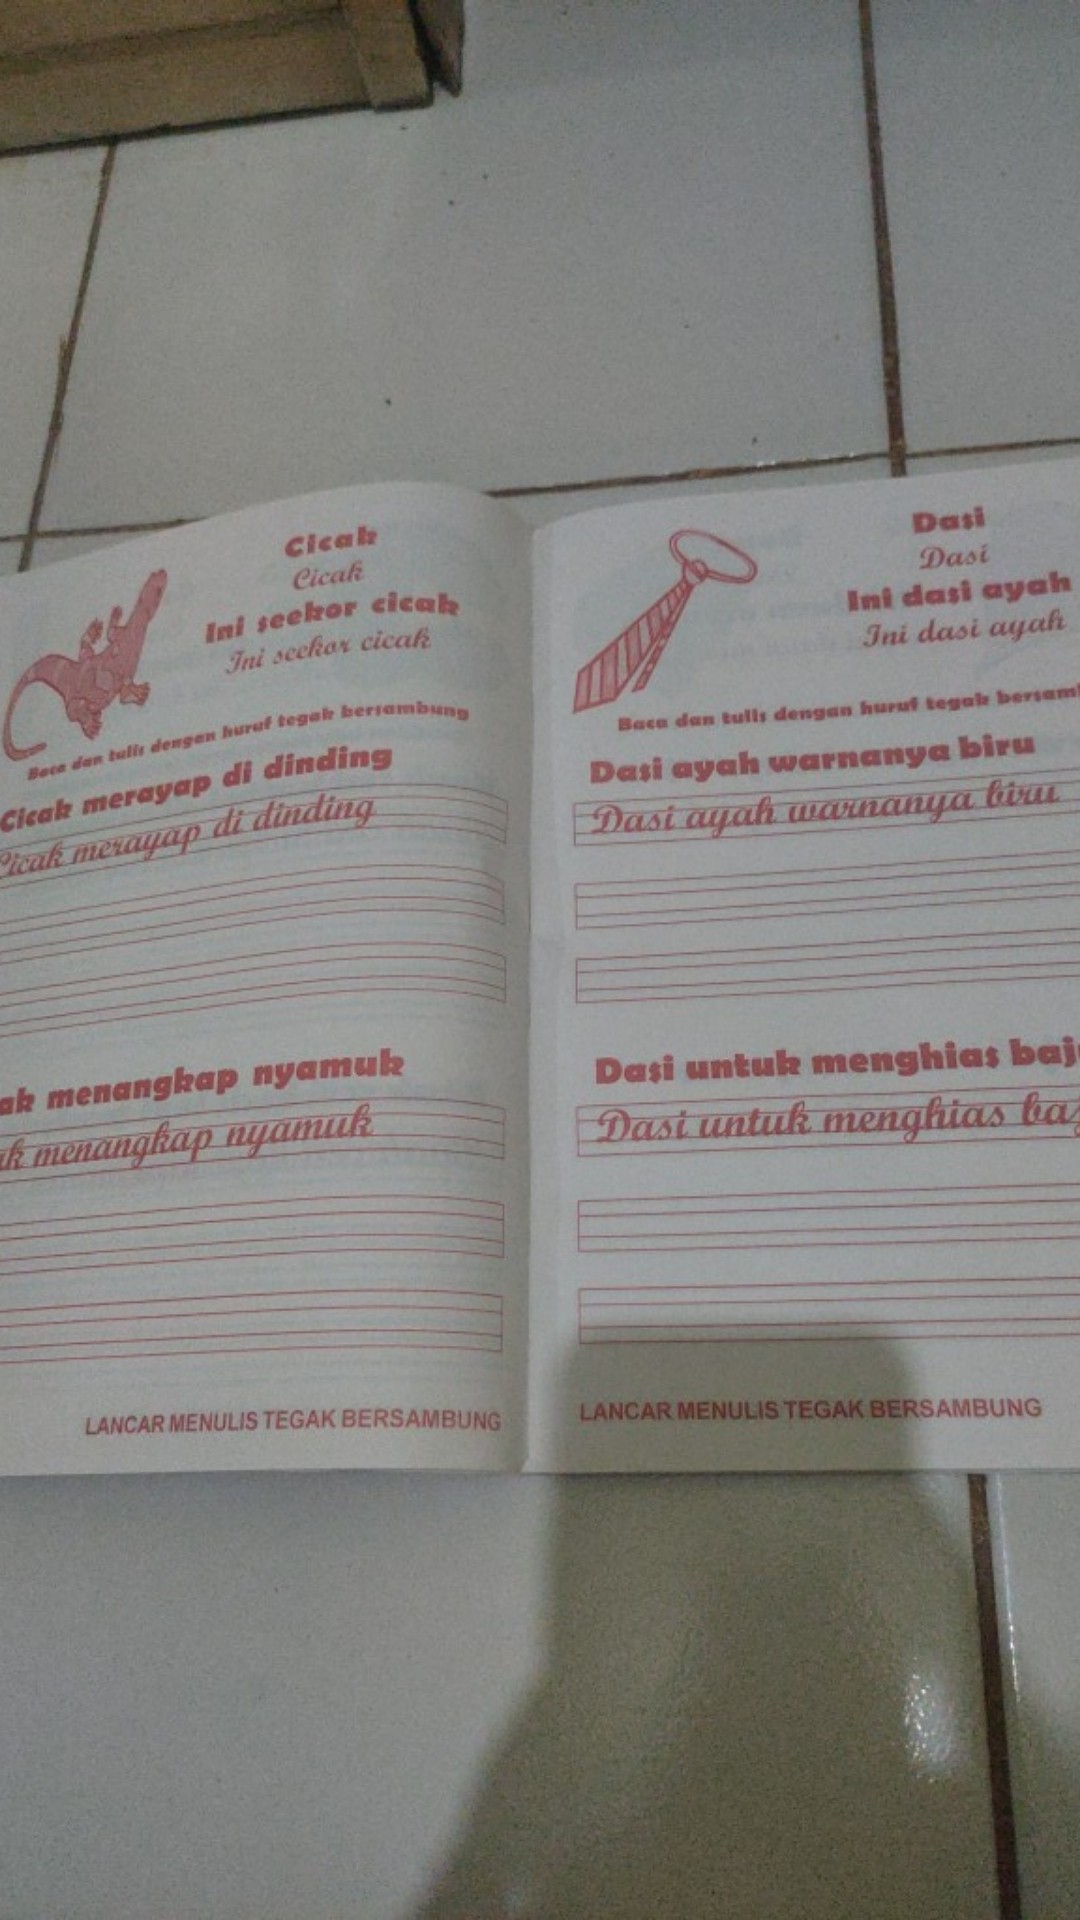 Cicak
Cicak
Ini seekor cicak
Ini seekor cicak
Baca dan tulis dengan huruf tegak bersambung
Cicak merayap di dinding
Cicak merayap di dinding
menangkap nyamuk
menangkap nyamuk
LANCAR MENULIS TEGAK BERSAMBUNG
Dasi
Dasi
Ini dasi ayah
Ini dasi ayah
Baca dan tulis dengan huruf tegak
Dasi ayah warnanya biru
Dasi ayah warnanya biru
Dasi untuk menghias
Dasi untuk menghias
LANCAR MENULIS TEGAK BERSAMBUNG